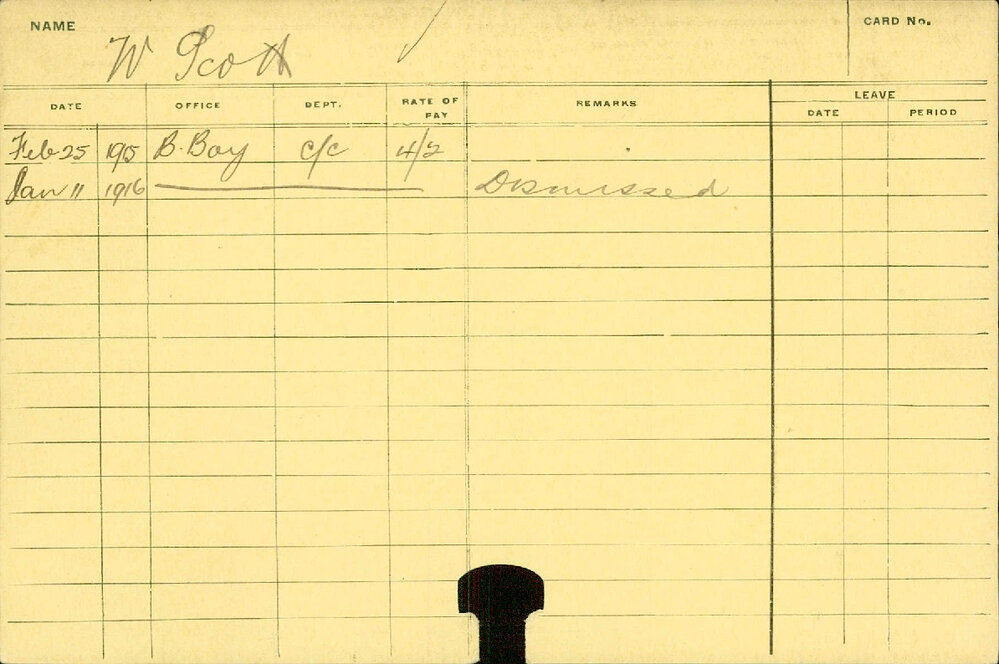 NAME W Scott CARD No.
DATE OFFICE DEPT. RATE OF PAY REMARKS LEAVE
DATE PERIOD
Feb 25 1915 B. Boy c/c 4/2
Jan 11 1916 Dismissed